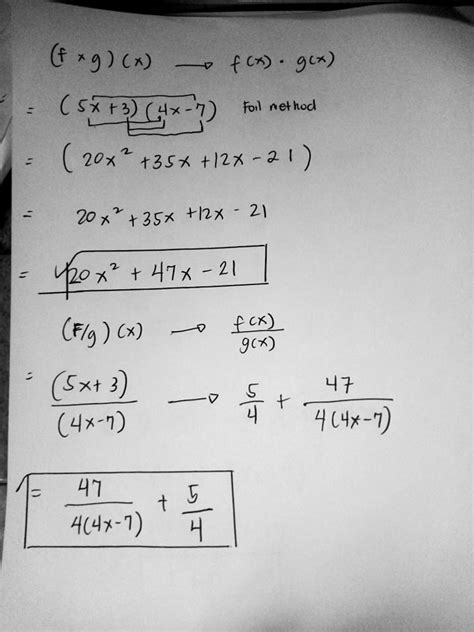 (f × g)(x) → f(x) · g(x)
= (5x + 3)(4x - 7) Foil method
= (20x² + 35x + 12x - 21)
= 20x² + 35x + 12x - 21
= 20x² + 47x - 21
(F/g)(x) → f(x)/g(x)
= (5x + 3)/(4x - 7) → 5/4 + 47/4(4x-7)
= 47/4(4x-7) + 5/4